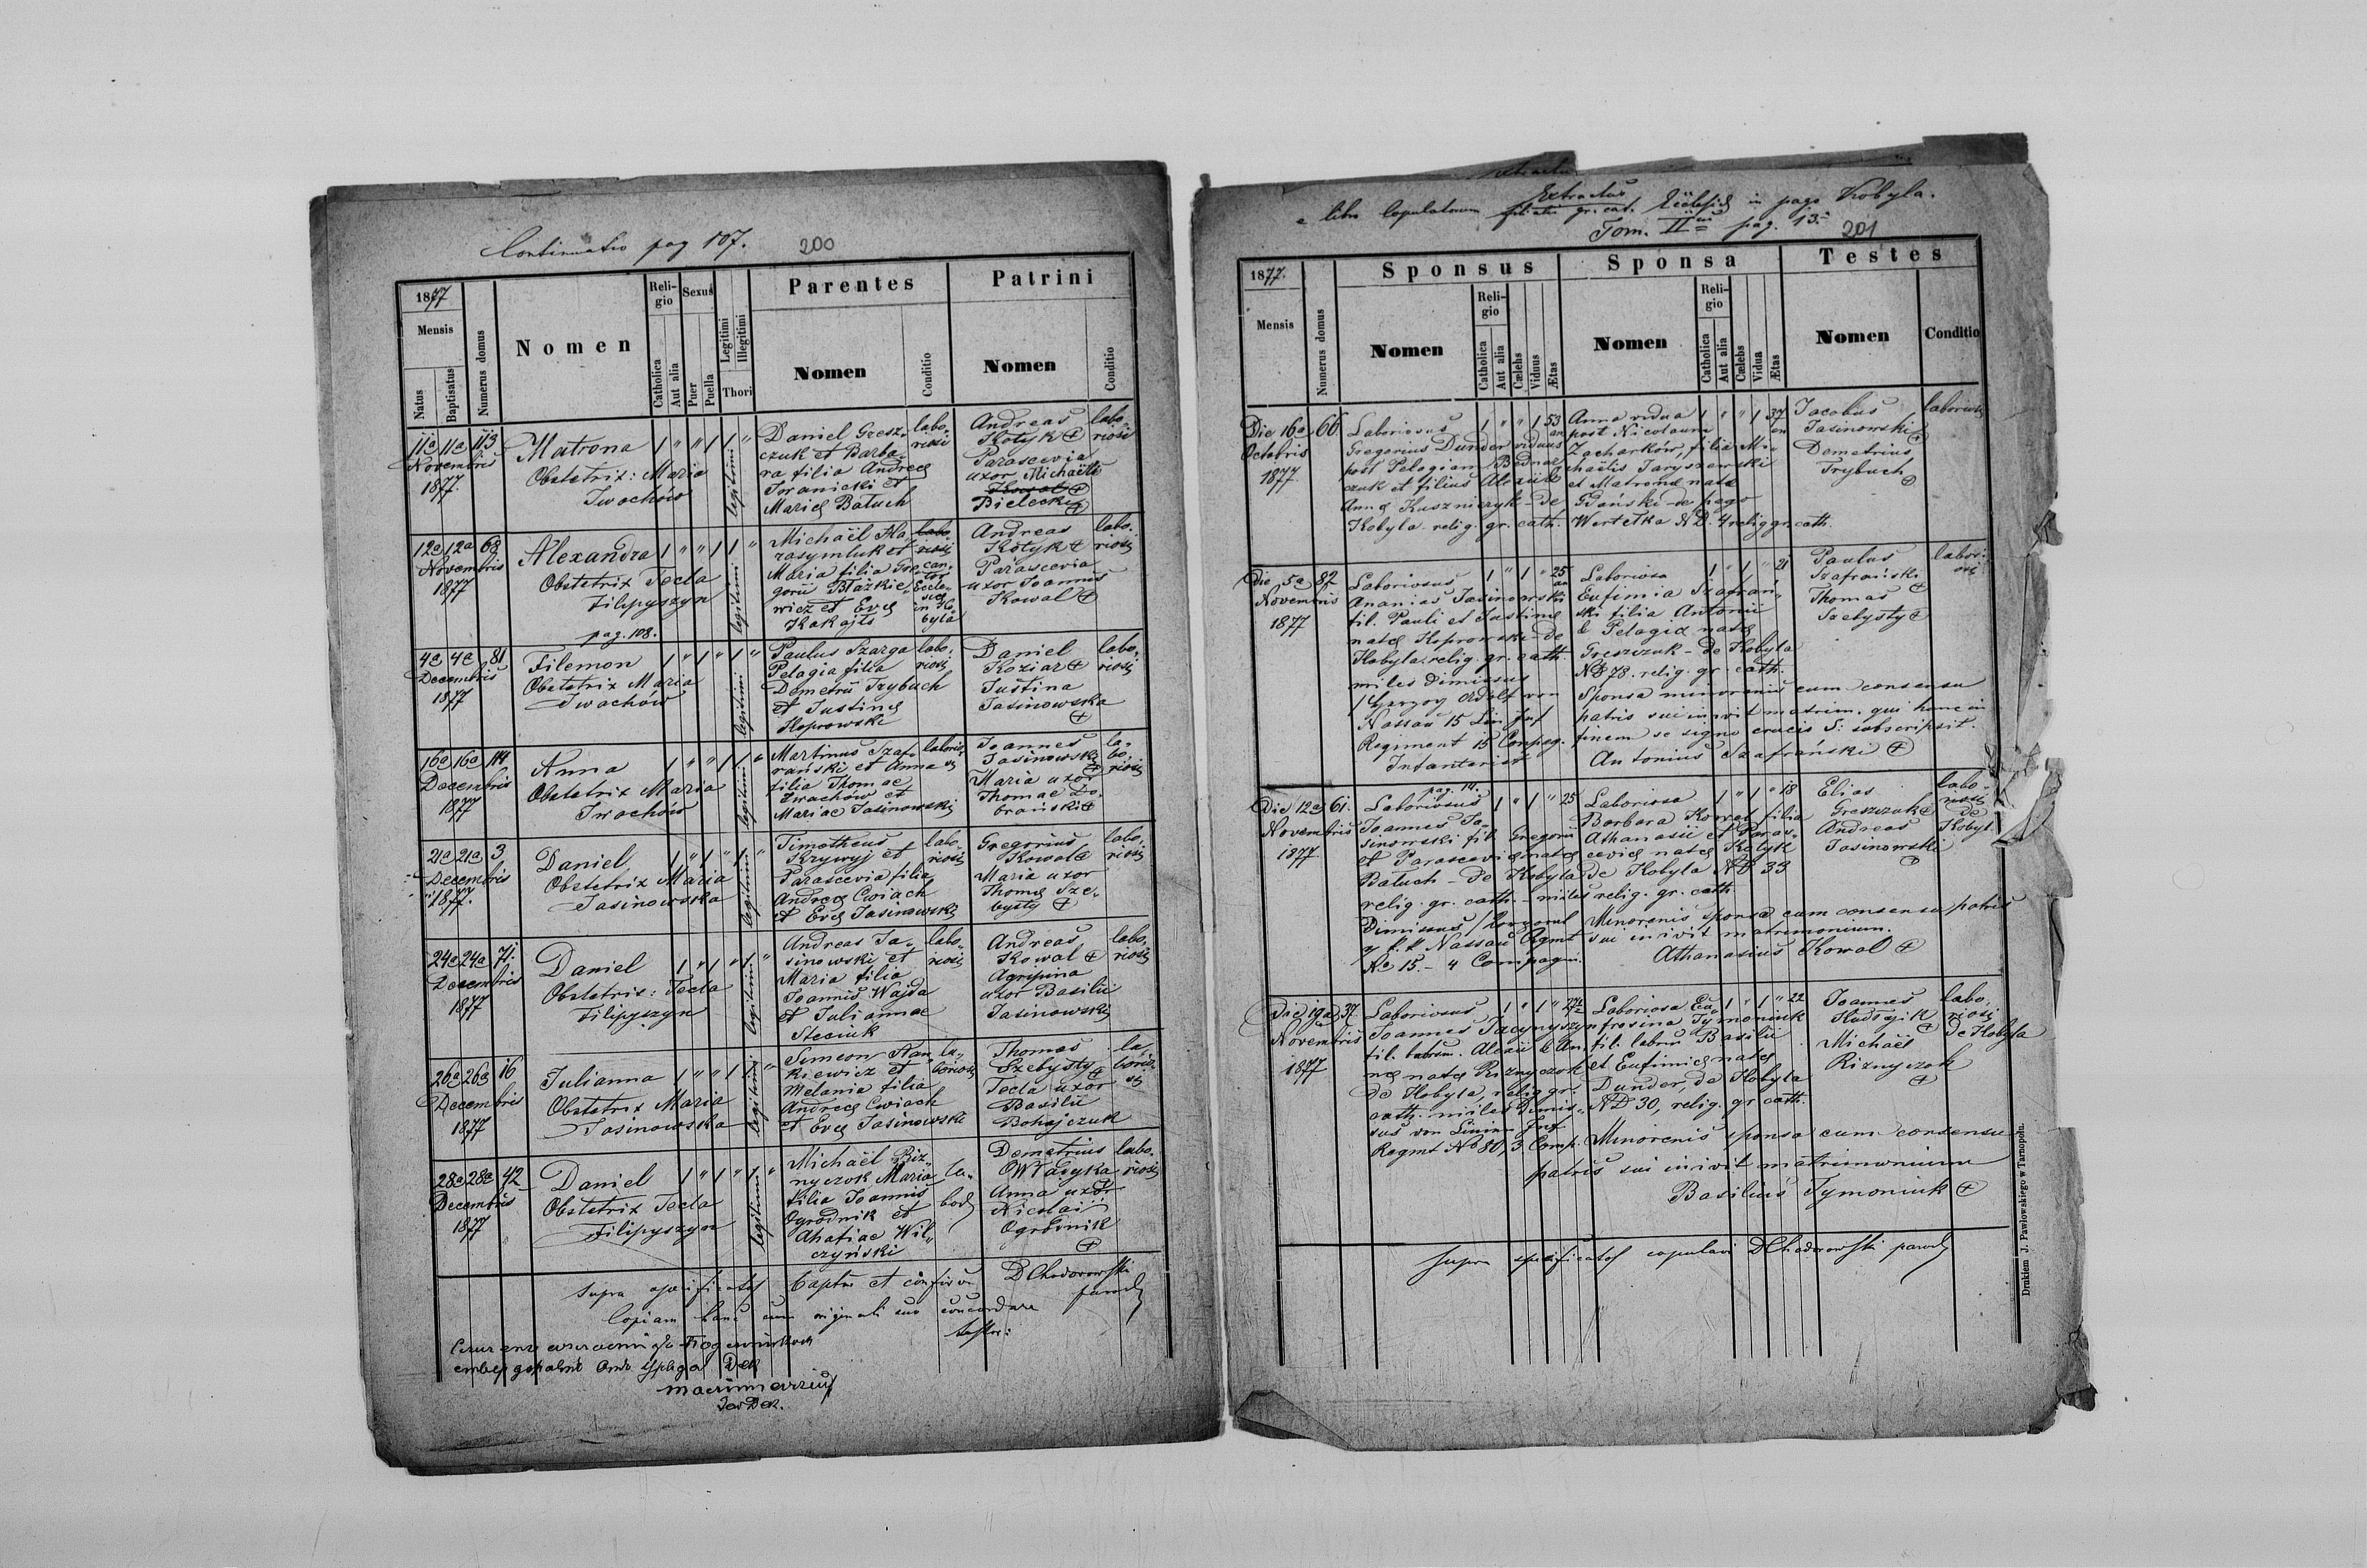 Continuatio pag 107.
200
1877
Mensis
Natus
Baptisatus
Numerus domus
Nomen
Religio
Catholica
Aut alia
Sexus
Puer
Puella
Legitimi
Illegitimi
Thori
Parentes
Nomen
Conditio
Patrini
Nomen
Conditio
11a 11a 113
Novembris
1877
Matrona 1 " " 1 1 "
Obstetrix: Maria
Iwachów
legitimi
Daniel Gresz-
czuk et Barba-
ra filia Andreae
Iwanicki et
Mariae Batuch
labo-
riosi
Andreas
Kotyk +
Parascevia
uxor Michaelis
Kowal +
Bielecki +
labo-
riosi
12a 12a 68
Novembris
1877
Alexandra 1 " " 1 1 "
Obstetrix Tecla
Filipyszyn
legitimi
Michaël Ha-
rasymluk et
Maria filia Gre-
gorii Błażkie-
wicz et Evae
Kokajto
labo-
riosi
can-
tor
Eccle-
siae
in Ko-
byla
Andreas
Kotyk +
Parascevia
uxor Joannis
Kowal +
labo-
riosi
pag. 108.
4a 4a 81
Decembris
1877
Filemon 1 " 1 " 1 "
Obstetrix Maria
Iwachów
legitimi
Paulus Szarga
Pelagia filia
Demetrii Trybuch
et Justinae
Koprowski
labo-
riosi
Daniel
Koziar +
Justina
Jasinowska
+
labo-
riosi
16a 16a 114
Decembris
1877
Anna 1 " " 1 1 "
Obstetrix Maria
Iwachów
legitimi
Martinus Szaf-
rański et Anna
filia Thomae
Iwachów et
Mariae Jasinowski
laborio-
si
Joannes
Jasinowski
+
Maria uxor
Thomae Do-
brański +
la-
bo-
riosi
21a 21a 3
Decembris
1877.
Daniel 1 " 1 " 1 "
Obstetrix Maria
Jasinowska
legitimi
Timotheus
Krywyj et
Parascevia filia
Andreae Cwiach
et Evae Jasinowski
labo-
riosi
Gregorius
Kowal +
Maria uxor
Thomae Sze-
bysty +
labo-
riosi
24a 24a 71.
Decembris
1877
Daniel 1 " 1 " 1 "
Obstetrix: Tecla
Filipyszyn
legitimi
Andreas Ja-
sinowski et
Maria filia
Joannis Wajda
et Juliannae
Steciuk
labo-
riosi
Andreas
Kowal +
Agripina
uxor Basilii
Jasinowski
labo-
riosi
26a 26a 16
Decembris
1877
Julianna 1 " " 1 1 "
Obstetrix Maria
Jasinowska
legitimi
Simeon Stan-
kiewicz et
Melania filia
Andreae Cwiach
et Evae Jasinowski
la-
boriosi
Thomas
Szebysty +
Tecla uxor
Basilii
Bohajczuk
la-
borio-
si
28a 28a 42
Decembris
1877
Daniel 1 " 1 " 1 "
Obstetrix Tecla
Filipyszyn
legitimi
Michaël Riz-
nyczok Maria
filia Joannis
Ogrodnik et
Ahafiae Wil-
czyński
la-
bor
Demetrius
Władyka
Anna uxor
Nicolai
Ogrodnik
+
labo-
riosi
Supra specificatos baptisavi et confirmavi DChodorowski
paroch
Copiam hanc cum originali suo concordare
testor:
extractus
Extractus
e libro Copulatorum filialis gr. cat. Ecclesiae in pago Kobyla.
Tom. II pag. 13.
201
1877.
Mensis
Numerus domus
Sponsus
Nomen
Religio
Catholica
Aut alia
Cælebs
Viduus
Ætas
Sponsa
Nomen
Religio
Catholica
Aut alia
Cælebs
Vidua
Ætas
Testes
Nomen
Conditio
Die 16a 66
Octobris
1877
Laboriosus 1 " " 1 53
an
Gregorius Dunder viduus
post Pelagiam Bodnar-
czuk et filius Alexii &
Annae Kuszniryk - de
Kobyla relig. gr. cath.
Anna vidua 1 " " 1 37
an
post Nicolaum
Zacharków, filia Mi-
chaëlis Jaryszewski
et Matronae natae
Gdański de pago
Wertełka ND. 4 relig gr. cath.
Jacobus
Jasinowski
+
Demetrius
Trybuch
+
laboriosi
Die 5a 87
Novembris
1877
Laboriosus 1 " 1 " 25
an
Ananias Jasinowski
fil. Pauli et Justinae
natae Koprowski - de
Kobyla relig. gr. cath.
miles dimissus
/ Herzog Adolf von
Nassau 15 Lin Inf
Regiment 15 Compag.
Infanterist
Laboriosa 1 " 1 " 21
Eufimia Szafrań-
ski filia Antonii
& Pelagia natae
Greszczuk - de Kobyla
N 78. relig. gr. cath.
Sponsa minorenis cum consensu
patris sui inivit matrim. qui hunc in
finem se signo crucis S: subscripsit.
Antonius Szafrański +
Paulus
Szafrański
+
Thomas
Szebysty +
labor-
osi
pag. 14.
Die 12a 61.
Novembris
1877
Laboriosus 1 " 1 " 25
Joannes Ja-
sinowski fil. Gregorii
et Parasceviae natae
Batuch - de Kobyla
relig. gr. cath. - miles
dimissus / Korporal
Nassau Rgmt
No 15. - 4 Compagni.
Laboriosa 1 " 1 " 18
Barbara Kowal filia
Athanasii et Paras-
ceviae natae Kotyk
de Kobyla ND 33
relig. gr. cath.
Minorenis sponsa cum consensu patris
sui inivit matrimonium.
Athanasius Kowal +
Elias
Greszczuk +
Andreas
Jasinowski
+
labo-
riosi
de
Kobyla
Die 19a 37.
Novembris
1877
Laboriosus 1 " 1 " 27½
Joannes Jacynyszyn
fil. labrsm. Alexii & An-
nae natae Riznyczok
de Kobyla, relig. gr.
cath. miles dimis-
sus von Linien Inf.
Regmt No 80, 3 Comp.
Laboriosa Eu- 1 " 1 " 22
frosina Tymoniuk
fil: labrm Basilii
et Eufimiae natae
Dunder de Kobyla
ND 30, relig. gr cath.
Minorenis sponsa cum consensu
patris sui inivit matrimonium
Basilius Tymoniuk +
Joannes
+
Michaël
Riznyczok
+
labo-
riosi
de Kobyla
Supra specificatos copulavi DChodorowski paroch
Drukiem J. Pawłowskiego w Tarnopolu.